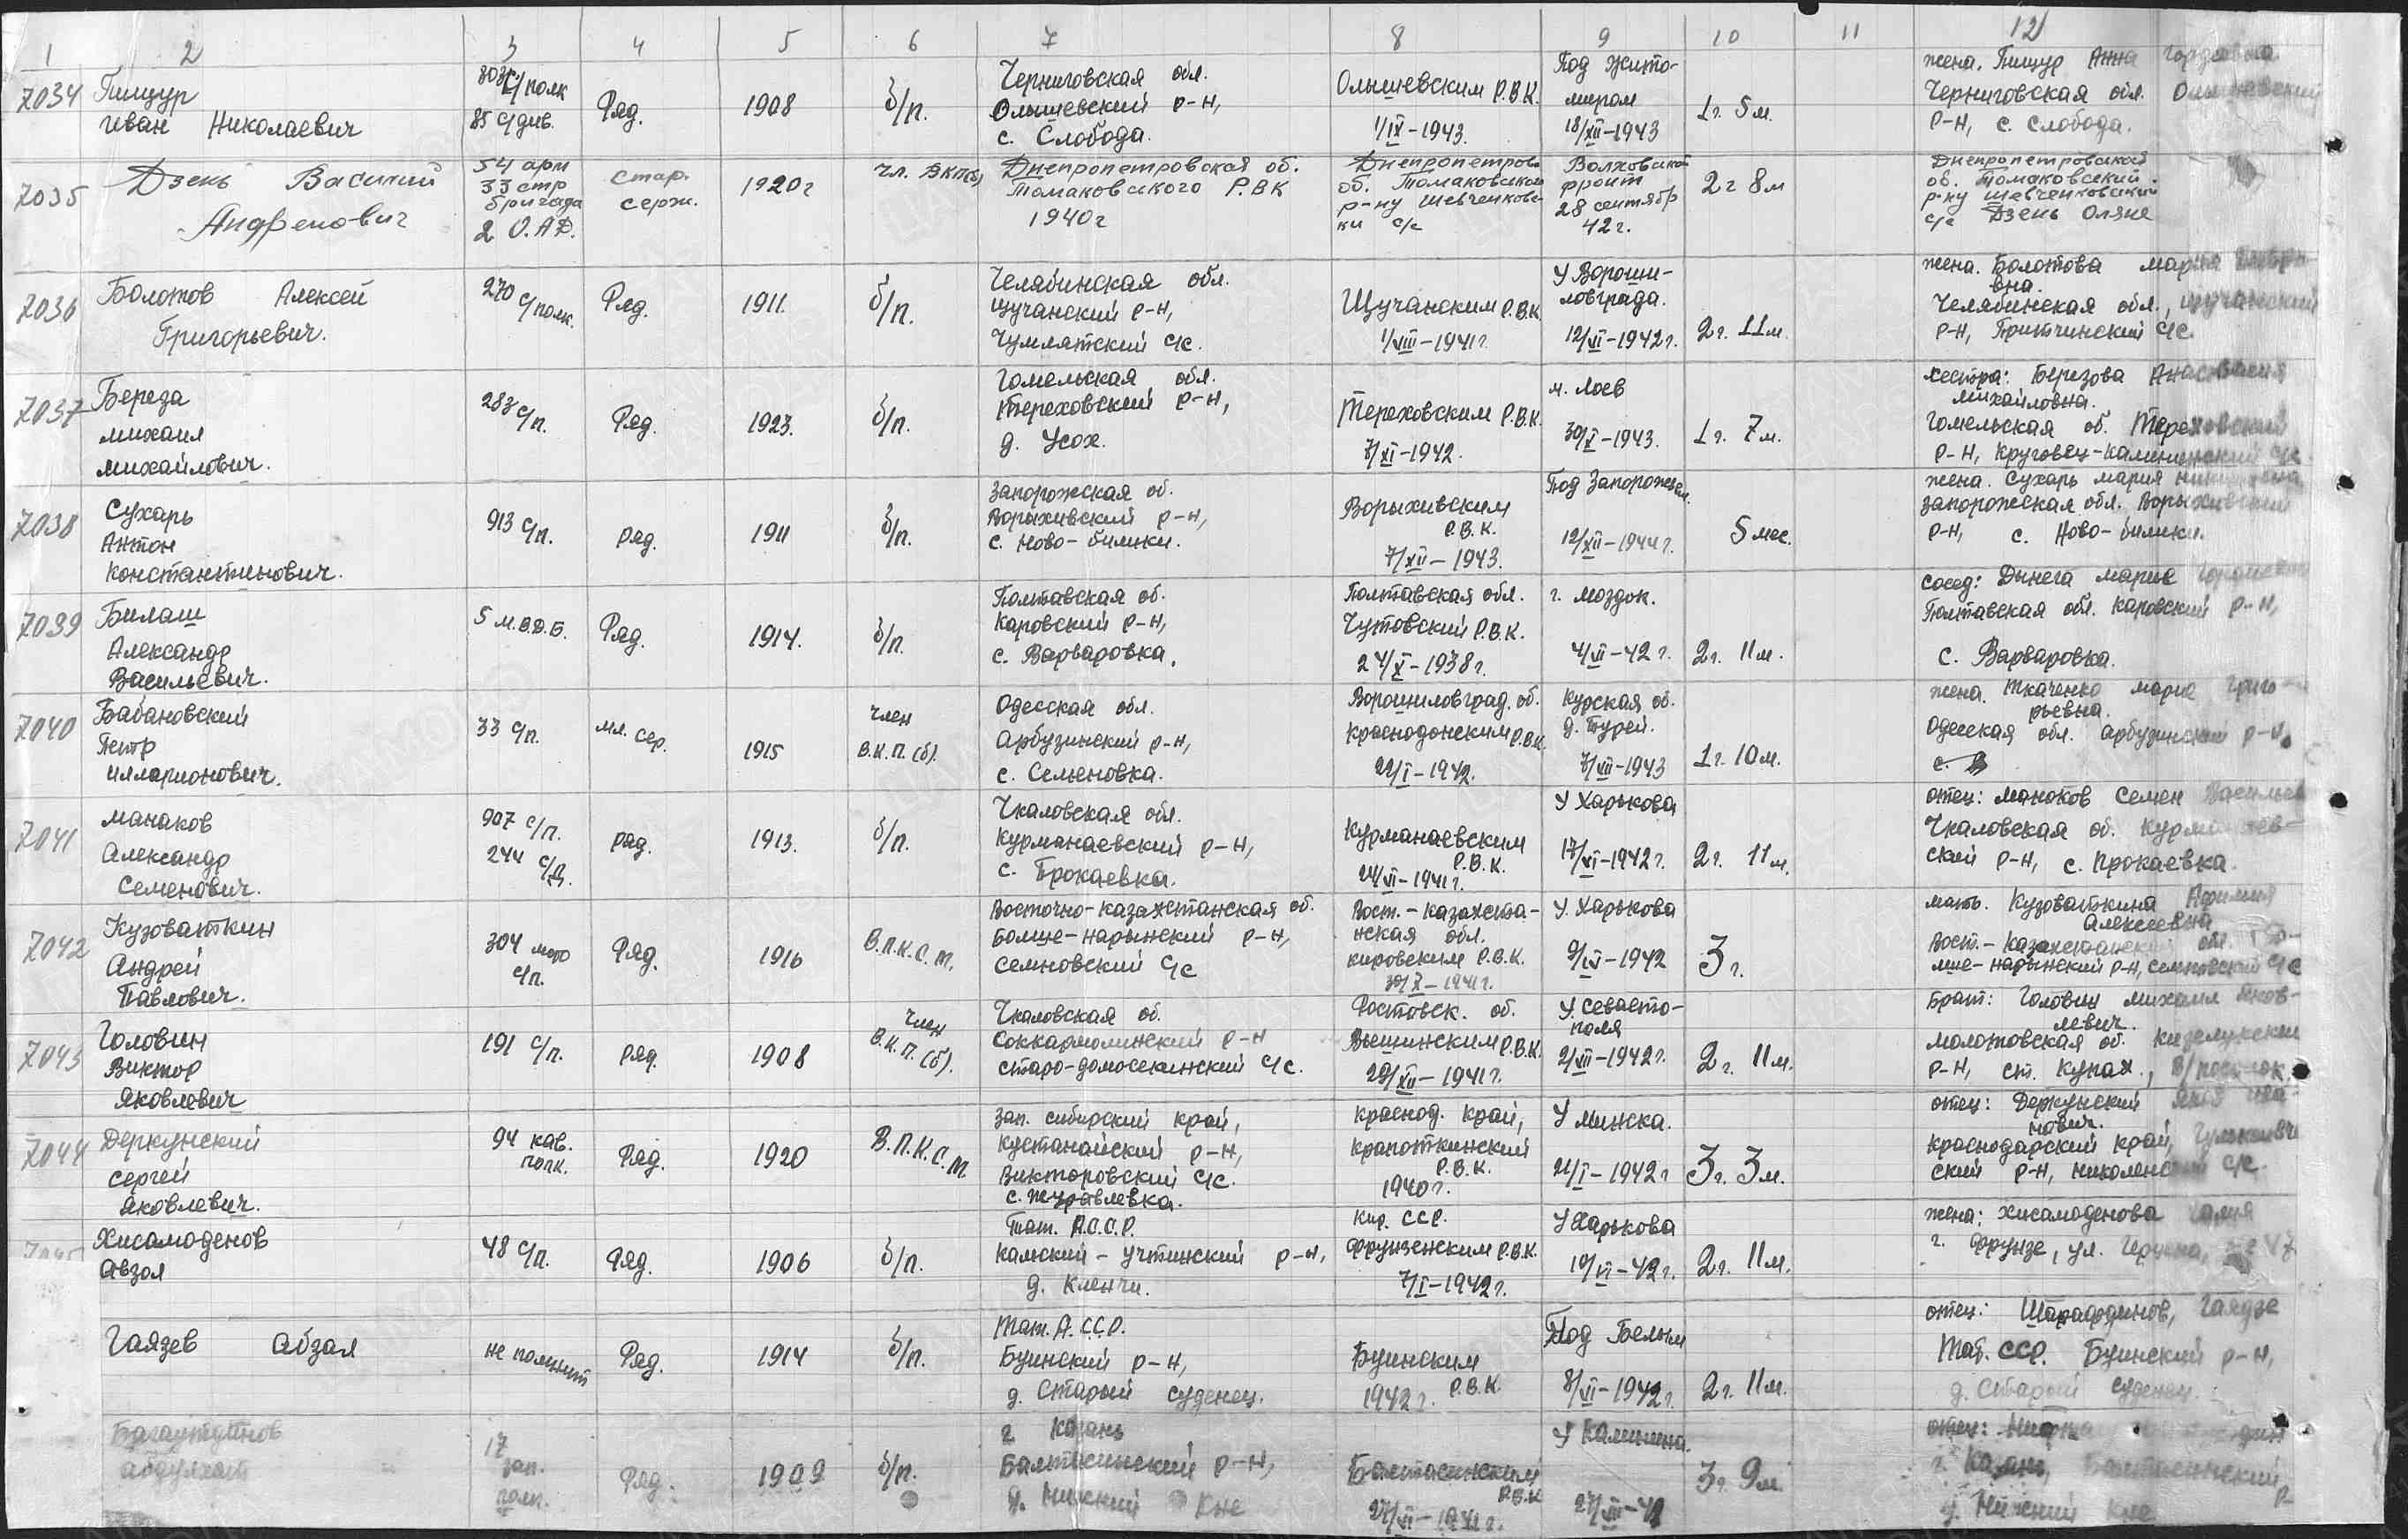 1 2 3 4 5 6 7 8 9 10 11 12
7034
Пищур
Иван Николаевич
803 с/полк
85 с/див.
Ряд.
1908
б/п.
Черниговская обл.
Олышевский р-н,
с. Слобода.
Олышевским Р.В.К.
1/IX-1943.
Под Жито-
миром
18/XII-1943
1г. 5м.
жена. Пищур Анна
Черниговская обл. Олышевский
р-н, с. Слобода.
7035
Дзень Василий
Андреевич
54 арм
33 стр
бригада
2 О.А.Д.
стар.
серж.
1920г
чл. ВКП(б)
Днепропетровская об.
Томаковского Р.ВК
1940г
Днепропетров.
об. Томаковском
р-ну Шевченковс-
ки с/с
Волховской
фронт
28 сентябр
42г.
2г 8м
Днепропетровской
об. Томаковский.
р-ну Шевченковский
с/с Дзень Оляне
7036
Болотов Алексей
Григорьевич.
270 с/полк.
Ряд.
1911.
б/п.
Челябинская обл.
Щучанский р-н,
Чумлятский с/с.
Щучанским Р.В.К.
1/VIII-1941г.
У Вороши-
ловграда.
12/VI-1942г.
2г. 11м.
жена. Болотова Мария
вна.
Челябинская обл., Щучанский
р-н, Притчинский с/с.
7037
Береза
Михаил
Михайлович.
283 с/п.
Ряд.
1923.
б/п.
Гомельская обл.
Тереховский р-н,
д. Усох.
Тереховским Р.В.К.
7/XI-1942.
м. Лоев
30/X-1943.
1г. 7м.
сестра: Березова Анастасия
Михайловна.
Гомельская об. Тереховский
р-н, Круговец-Калининский с/с.
7038
Сухарь
Антон
Константинович.
913 с/п.
ряд.
1911
б/п.
Запорожская об.
Ворыхивский р-н,
с. Ново-билики.
Ворыхивским
Р.В.К.
7/XII-1943.
Под Запорожьем.
12/XII-1944г.
5 мес.
жена. Сухарь Мария
Запорожская обл. Ворыхивский
р-н, с. Ново-билики.
7039
Билаш
Александр
Васильевич.
5 М.В.Д.Б.
Ряд.
1914.
б/п.
Полтавская об.
Каровский р-н,
с. Варваровка.
Полтавская обл.
Чутовский Р.В.К.
24/X-1938г.
г. Моздок.
4/VII-42г.
2г. 11м.
Сосед: Дынега Марие
Полтавская обл. Каровский р-н,
с. Варваровка.
7040
Бабановский
Петр
Илларионович.
33 с/п.
мл. сер.
1915
член
В.К.П.(б).
Одесская обл.
Арбузинский р-н,
с. Семеновка.
Ворошиловград. об.
Краснодонским Р.В.К.
22/I-1942.
Курская об.
д. Бурей.
7/VII-1943
1г. 10м.
жена. Ткаченко Мария Григо-
рьевна.
Одесская обл. Арбузинский р-н.
7041
Манаков
Александр
Семенович.
907 с/п.
244 с/д.
ряд.
1913.
б/п.
Чкаловская обл.
Курманаевский р-н,
с. Прокаевка.
Курманаевским
Р.В.К.
24/VI-1941г.
У Харькова
17/VI-1942г.
2г. 11м.
отец: Манаков Семен
Чкаловская об. Курманаев-
ский р-н, с. Прокаевка.
7042
Кузоваткин
Андрей
Павлович.
304 мото
с/п.
Ряд.
1916
В.Л.К.С.М.
Восточно-казахстанская об.
Больше-нарынский р-н,
Семновский с/с
Вост.-казахста-
нская обл.
Кировским Р.В.К.
30/X-1941г.
У. Харькова
9/IV-1942
3г.
мать. Кузоваткина
Алексеевна
Вост.-казахстанская обл. Бо-
льше-нарынский р-н, Семновский с/с
7043
Головин
Виктор
Яковлевич
191 с/п.
ряд.
1908
член
В.К.П.(б).
Чкаловская об.
Соккармолинский р-н
Старо-домосекинский с/с.
Ростовск. об.
Вешинским Р.В.К.
29/XII-1941г.
У. Севасто-
поля
2/VII-1942г.
2г. 11м.
Брат: Головин Михаил Яков-
левич.
Молотовская об.
р-н, ст. Купах,
7044
Деркунский
Сергей
Яковлевич.
94 кав.
полк.
Ряд.
1920
В.Л.К.С.М.
Зап. сибирский край,
Кустанайский р-н,
Викторовский с/с.
с. Журавлевка.
Краснод. край,
Крапоткинский
Р.В.К.
1940г.
У Минска.
21/I-1942г
3г. 3м.
отец: Деркунский Яков Ива-
нович.
Краснодарский край,
ский р-н, с/с.
Хисамоденов
Авзол
48 с/п.
Ряд.
1906
б/п.
Тат. А.С.С.Р.
Камский-Учтинский р-н,
д. Кленчи.
Кир. ССР.
Фрунзенским Р.В.К.
7/I-1942г.
У Харькова
10/VI-42г.
2г. 11м.
жена: Хисамоденова
г. Фрунзе, ул.
Гаязев Абзал
не помнит
Ряд.
1914
б/п.
Тат. А.С.С.Р.
Буинский р-н,
д. Старый Суденец.
Буинским
Р.В.К.
1942г.
Под Белым
8/VI-1942г.
2г. 11м.
отец: Шарафдинов,
Тат. ССР. Буинский р-н,
д. Старый Суденец.
Багаутдинов
17
зап.
полк.
Ряд.
1909
б/п.
г Казань
Балтасинский р-н,
д. Нижний Кне
Балтасинским
Р.В.К
27/VI-1941г.
У Калинина.
3г. 9м
отец:
г. Казань, Балтасинский
д. Нижний Кне